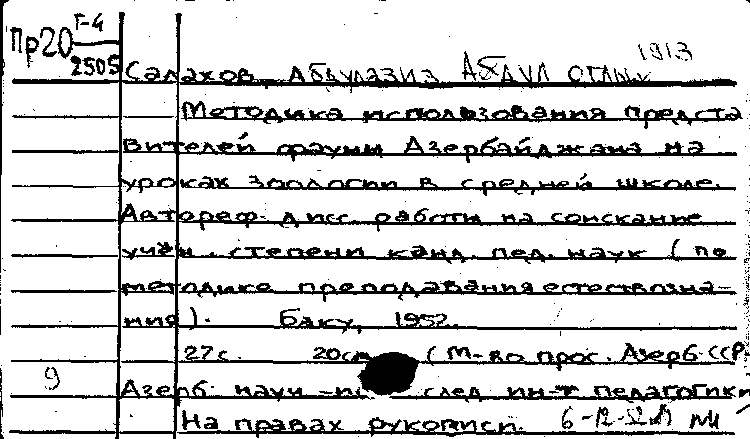 Пр20 Г-4
2505
1913
Салахов, Абдулазиз Абдул оглы
Методика использования предста
вителей фауны Азербайджана на
уроках зоологии в средней школе.
Автореф. дисс. работы на соискание
учён. степени канд. пед. наук (по
методике преподавания естествозна-
ния). Баку, 1952.
27с. 20см (М-во прос. Азерб. ССР
9
Азерб. науч след ин-т педагогики
На правах рукописи. 6-12-52